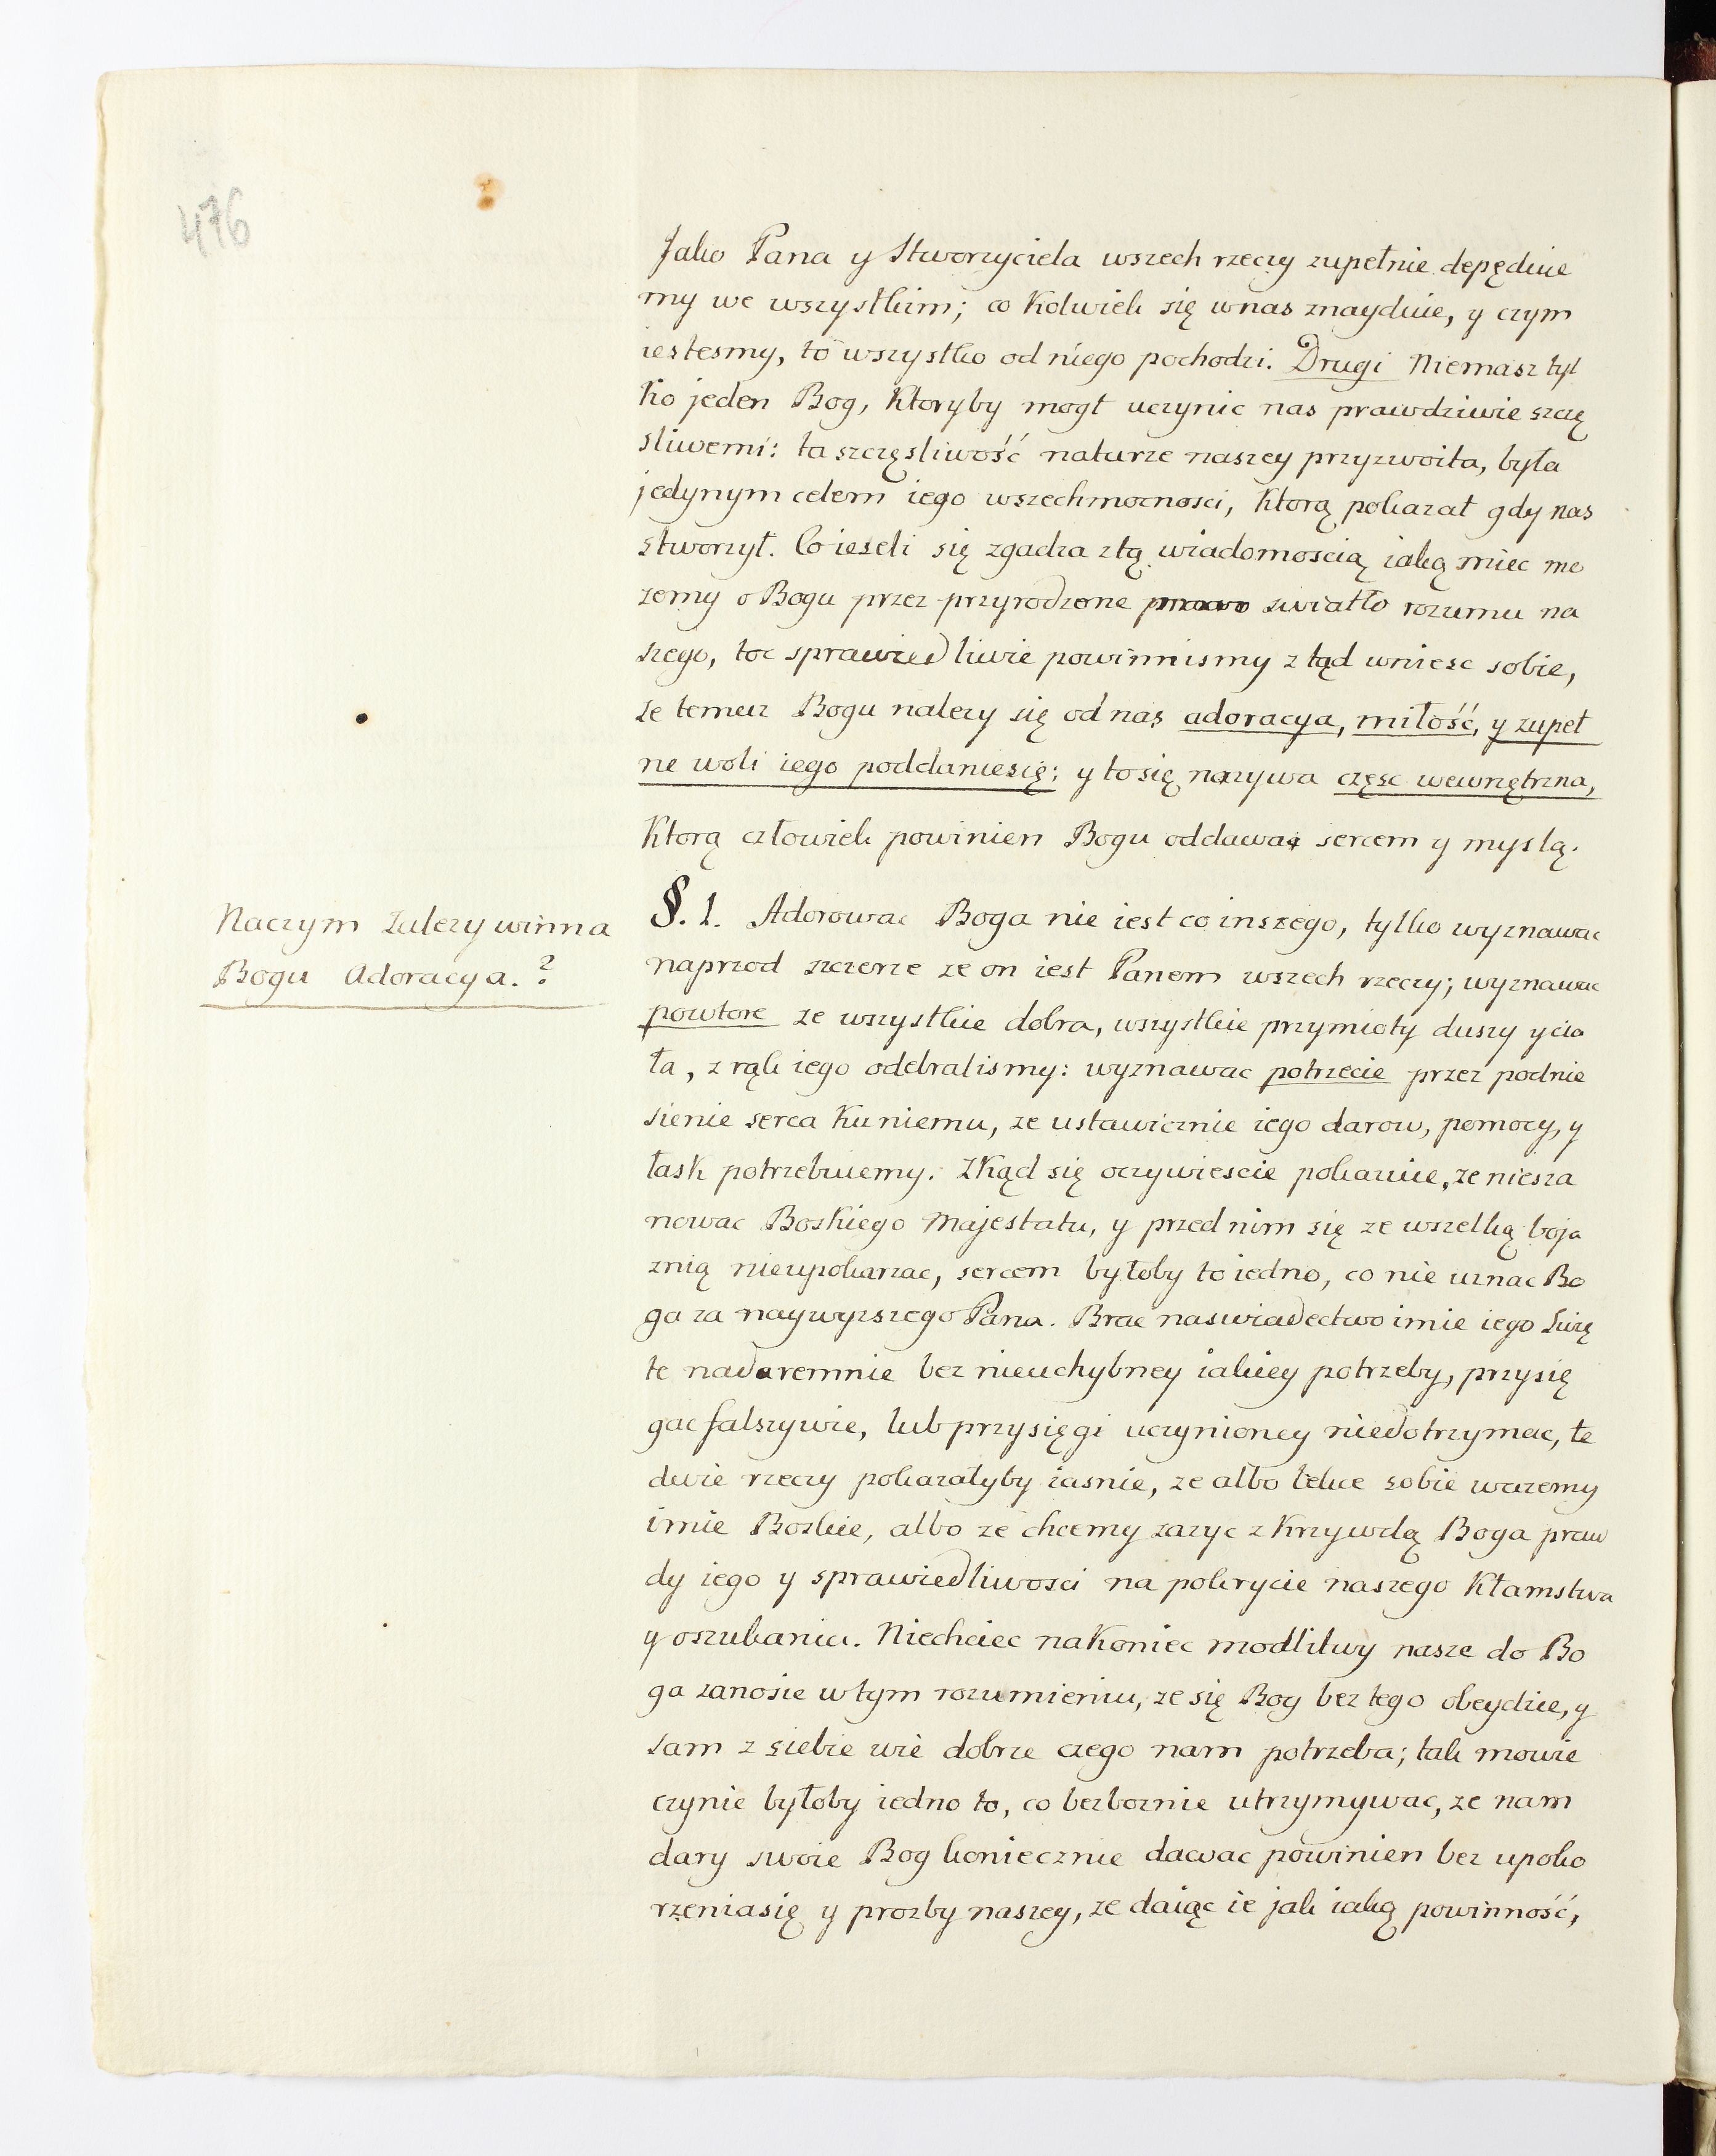 476
Jako Pana y Stworzyciela wszech rzeczy zupełnie depęduie
my we wszystkim; co kolwiek się wnas znayduie, y czym
iestesmy, to wszystko od niego pochodzi. Drugi Niemasz tyl
ko jeden Bog, Ktoryby mogł uczynic nas prawdziwie szczę
sliwemi: ta szczęsliwość naturze naszey przyzwoita, była
jedynym celem iego wszechmocnosci, Ktorą pokazał gdy nas
stworzył. Co ieseli się zgadza ztą wiadomoscią iaką miec mo
zemy o Bogu przez przyrodzone swiatło rozumu na
szego, toc sprawiedliwie powinnismy ztąd wniesc sobie,
ze temuz Bogu nalezy się od nas adoracya, miłość, y zupeł
ne woli iego poddaniesię; y tosię nazywa częsc wewnętrzna,
Ktorą człowiek powinien Bogu oddawać sercem y myslą.
Naczym Zalezy winna
Bogu Adoracya.?
§. 1. Adorowac Boga nie iest co inszego, tylko wyznawac
naprzod szczerze ze on iest Panem wszech rzeczy; wyznawac
powtore ze wszystkie dobra, wszystkie przymioty duszy y cia
ła, z rąk iego odebralismy: wyznawac potrzecie przez podnie
sienie serca Ku niemu, ze ustawicznie iego darow, pomocy, y
łask potrzebuiemy. Zkąd się oczywiescie pokazuie, ze niesza
nowac Boskiego Majestatu, y przed nim się ze wszelką boja
znią nieupokarzac, sercem byłoby to iedno, co nie uznac Bo
ga za naywyzszego Pana. Brac naswiadectwo imie iego Swię
te nadaremnie bez nieuchybney iakiey potrzeby, przysię
gac falszywie, lub przysięgi uczynioney niedotrzymac, te
dwie rzeczy pokazałyby iasnie, ze albo lekce sobie wazemy
imie Bozkie, albo ze chcemy zazyc z Krzywdą Boga praw
dy iego y sprawiedliwosci na pokrycie naszego Kłamstwa
y oszukania. Niechciec naKoniec modlitwy nasze do Bo
ga zanosic wtym rozumieniu, ze się Bog bez tego obeydzie, y
sam z siebie wie dobrze czego nam potrzeba; tak mowie
czynic byłoby iedno to, co bezboznie utrzymywac, ze nam
dary swoie Bog koniecznie dawac powinien bez upoko
rzeniasię y prozby naszey, ze daiąc ie jak iaką powinność,